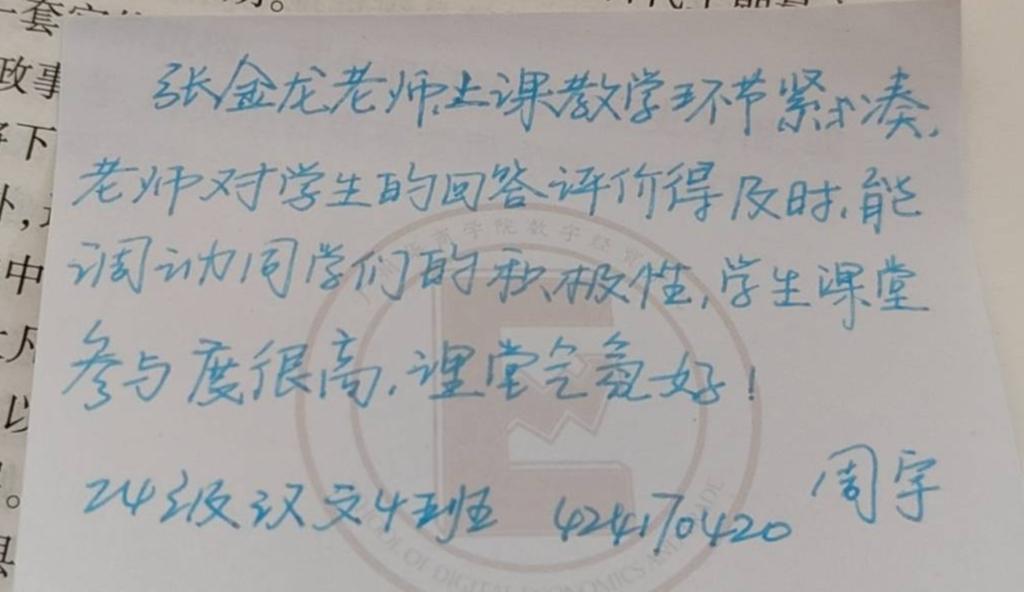 张金龙老师上课教学环节紧凑,
老师对学生的回答评价得及时,能
调动同学们的积极性,学生课堂
参与度很高,课堂气氛好!
24级汉文4班 424170420 周宇